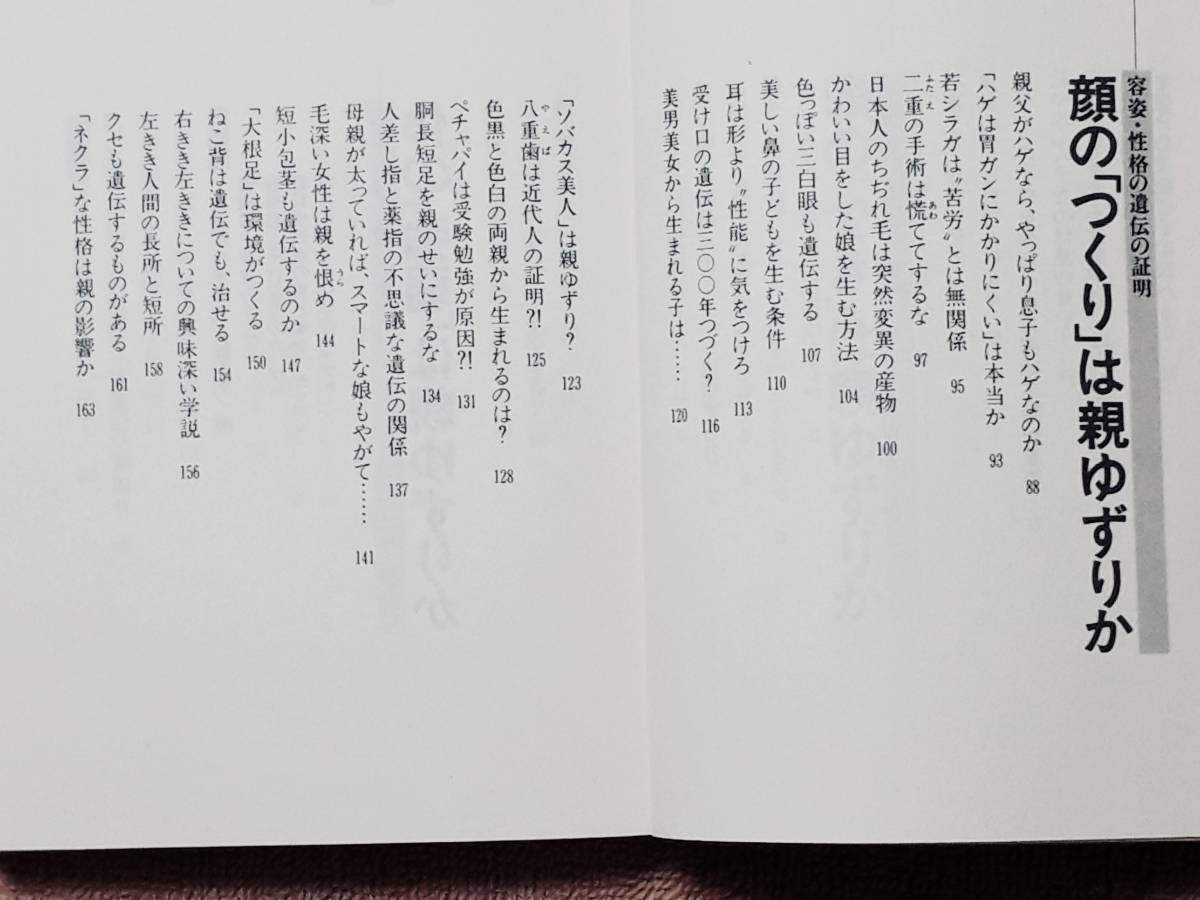 容姿・性格の遺伝の証明
顔の「つくり」は親ゆずりか
親父がハゲなら、やっぱり息子もハゲなのか 88
「ハゲは胃ガンにかかりにくい」は本当か 93
若シラガは〝苦労〟とは無関係 95
二重の手術は慌ててするな 97
日本人のちぢれ毛は突然変異の産物 100
かわいい目をした娘を生む方法 104
色っぽい三白眼も遺伝する 107
美しい鼻の子どもを生む条件 110
耳は形より〝性能〟に気をつけろ 113
受け口の遺伝は三〇〇年つづく? 116
美男美女から生まれる子は…… 120
「ソバカス美人」は親ゆずり? 123
八重歯は近代人の証明?! 125
色黒と色白の両親から生まれるのは? 128
ペチャパイは受験勉強が原因?! 131
胴長短足を親のせいにするな 134
人差し指と薬指の不思議な遺伝の関係 137
母親が太っていれば、スマートな娘もやがて…… 141
毛深い女性は親を恨め 144
短小包茎も遺伝するのか 147
「大根足」は環境がつくる 150
ねこ背は遺伝でも、治せる 154
右きき左ききについての興味深い学説 156
左きき人間の長所と短所 158
クセも遺伝するものがある 161
「ネクラ」な性格は親の影響か 163